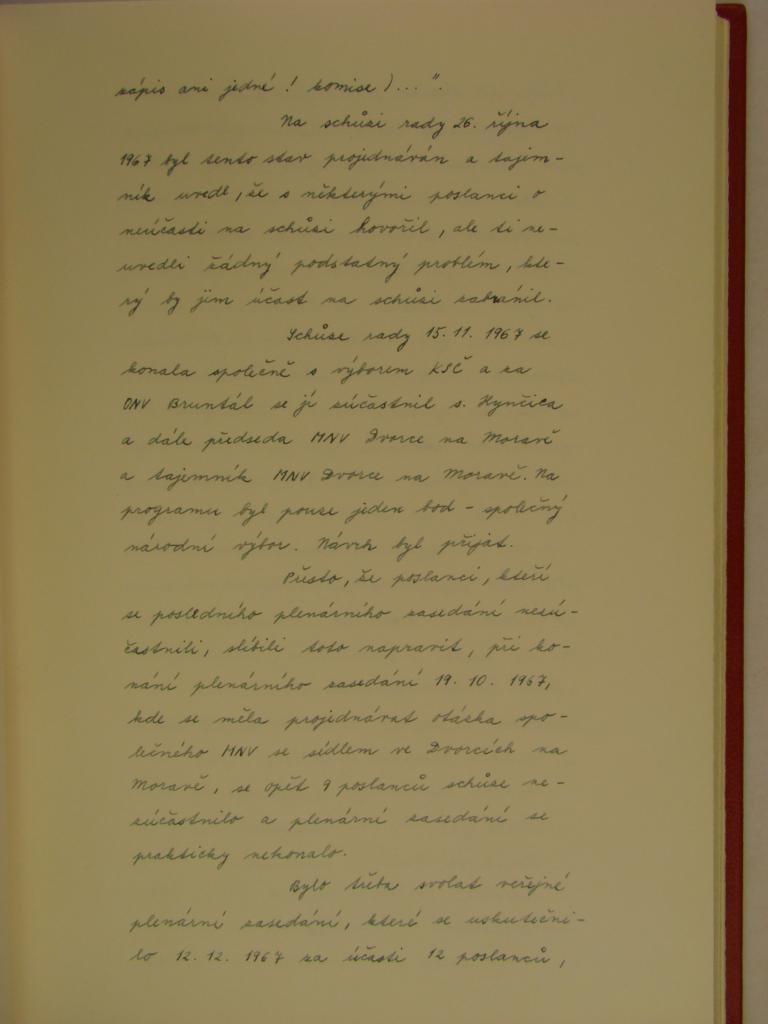 zápis ani jedné! komise)...".
Na schůzi rady 26. října
1967 byl tento stav projednáván a tajem-
ník uvedl, že s některými poslanci o
neúčasti na schůzi hovořil, ale ti ne-
uvedli žádný podstatný problém, kte-
rý by jim účast na schůzi zabránil.
Schůze rady 15.11. 1967 se
konala společně s výborem KSČ a za
ONV Bruntál se jí zúčastnil s. Hynčica
a dále předseda MNV Dvorce na Moravě
a tajemník MNV Dvorce na Moravě. Na
programu byl pouze jeden bod - společný
národní výbor. Návrh byl přijat.
Přesto, že poslanci, kteří
se posledního plenárního zasedání nezú-
častnili, slíbili toto napravit, při ko-
nání plenárního zasedání 19. 10. 1967,
kde se měla projednávat otázka spo-
lečného MNV se sídlem ve Dvorcích na
Moravě, se opět 9 poslanců schůze ne-
zúčastnilo a plenární zasedání se
prakticky nekonalo.
Bylo třeba svolat veřejné
plenární zasedání, které se uskutečni-
lo 12. 12. 1967 za účasti 12 poslanců,